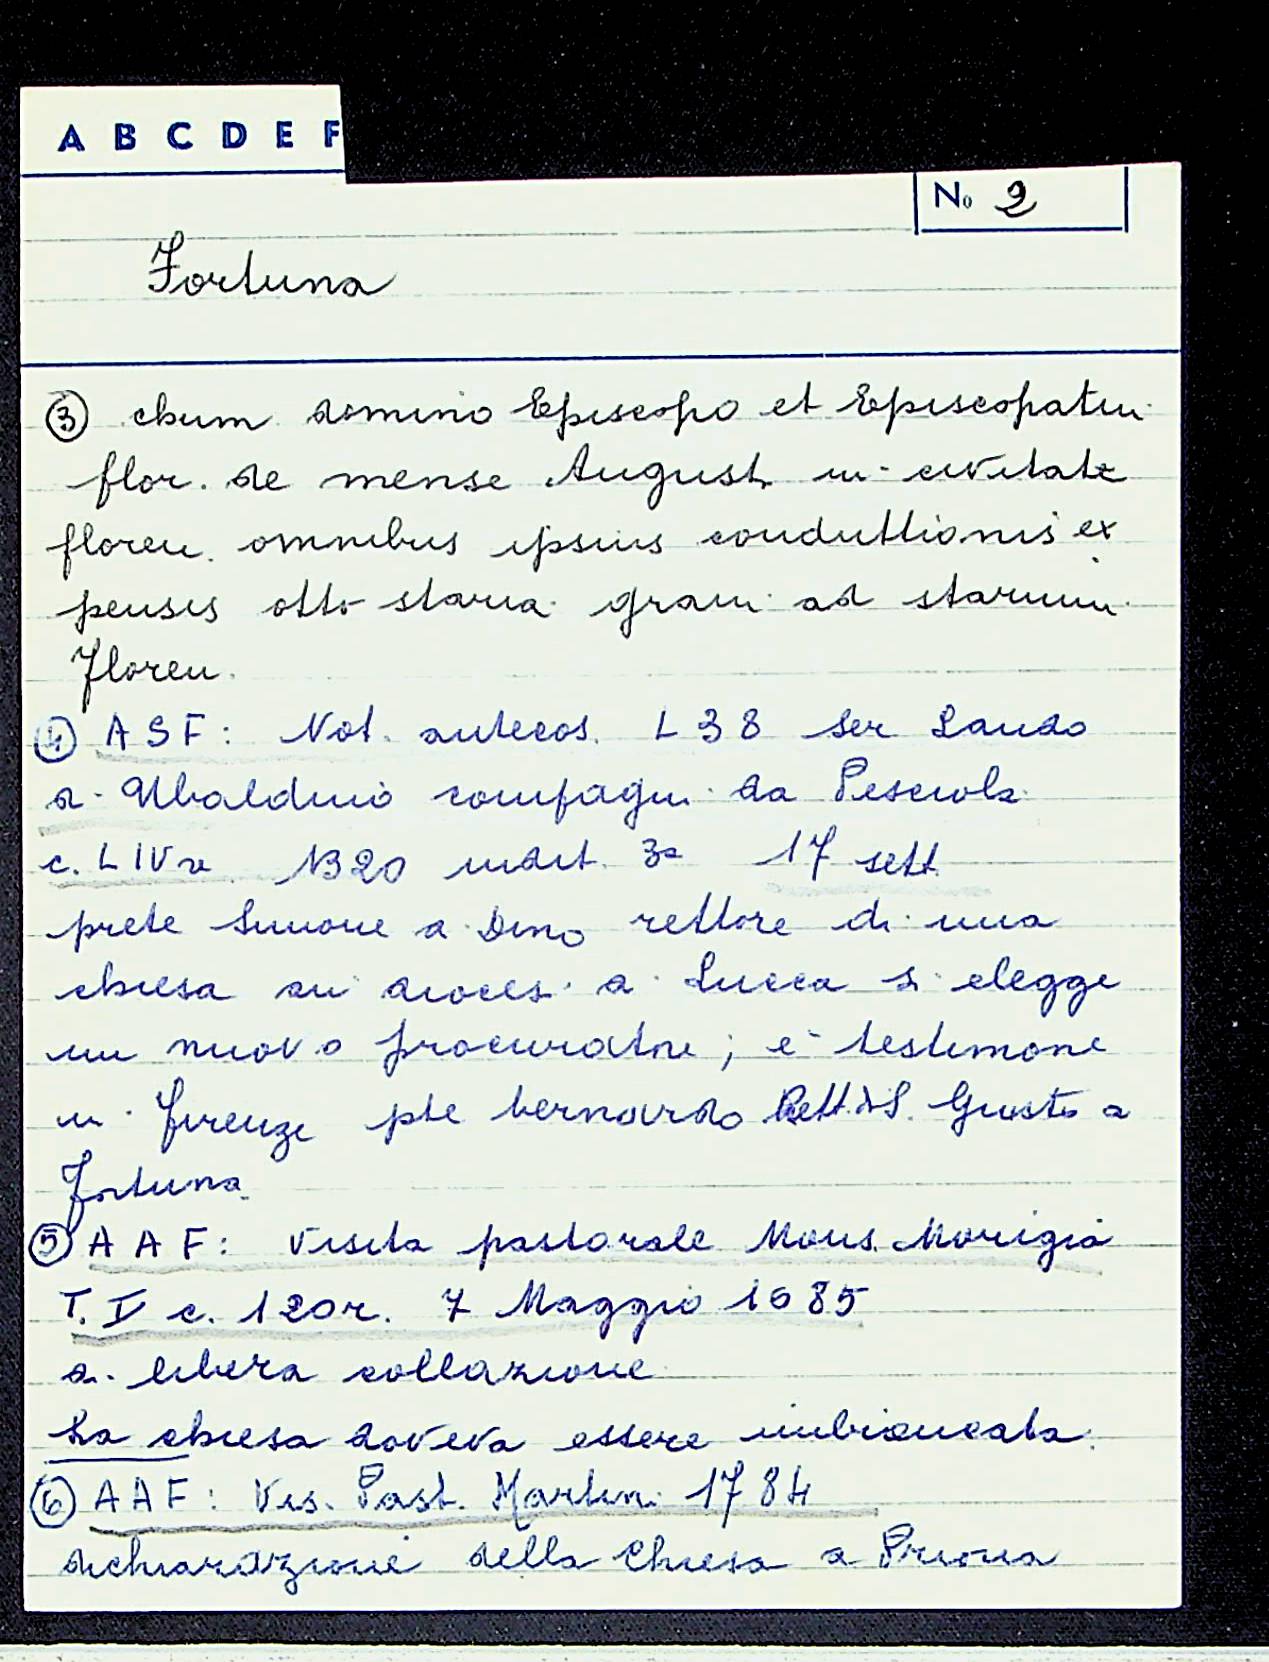 A B C D E F
No 2
Fortuna
③ chum domino Episcopo et Episcopatu
flor. de mense August. in civitate
floren. omnibus ipsius conduttionis ex
pensis otto staria grani ad starium
Floren.
④ ASF: Not. antecos. L 38 ser Lando
di Ubaldino compagni da Pesciola
c. LIV r 1320 indit. 3a 17 sett.
prete Simone di Dino rettore di una
chiesa in dioces. di Lucca si elegge
un nuovo procuratore; è testimone
in Firenze pte bernardo Rett di S. Giusto a
Fortuna.
⑤ AAF: Visita pastorale Mons. Morigia
T. V c. 120r. 7 Maggio 1685
di libera collazione
La chiesa doveva essere imbiancata.
⑥ AAF: Vis. Past. Martini 1784
dichiarazione della Chiesa a Prioria